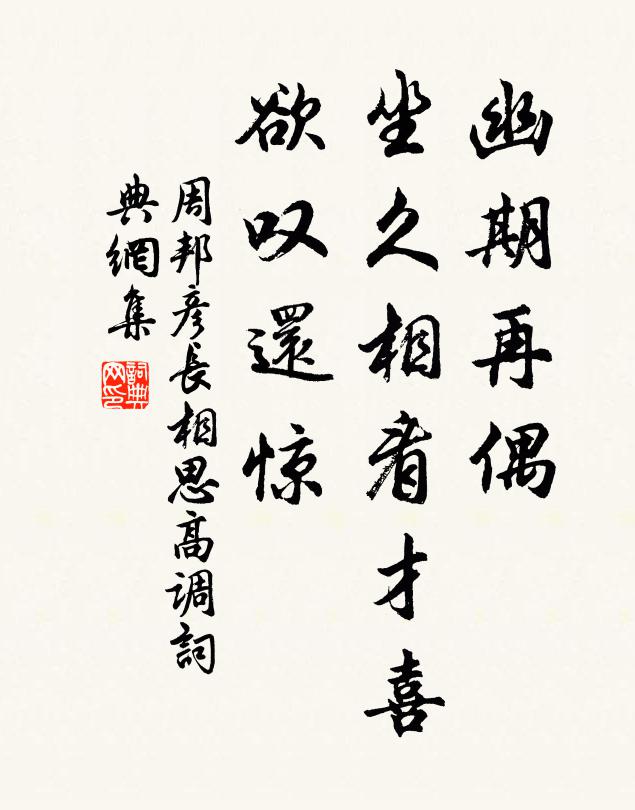 幽期再偶
坐久相看才喜
欲叹還惊
周邦彥長相思高調詞
典網集
詞典网印